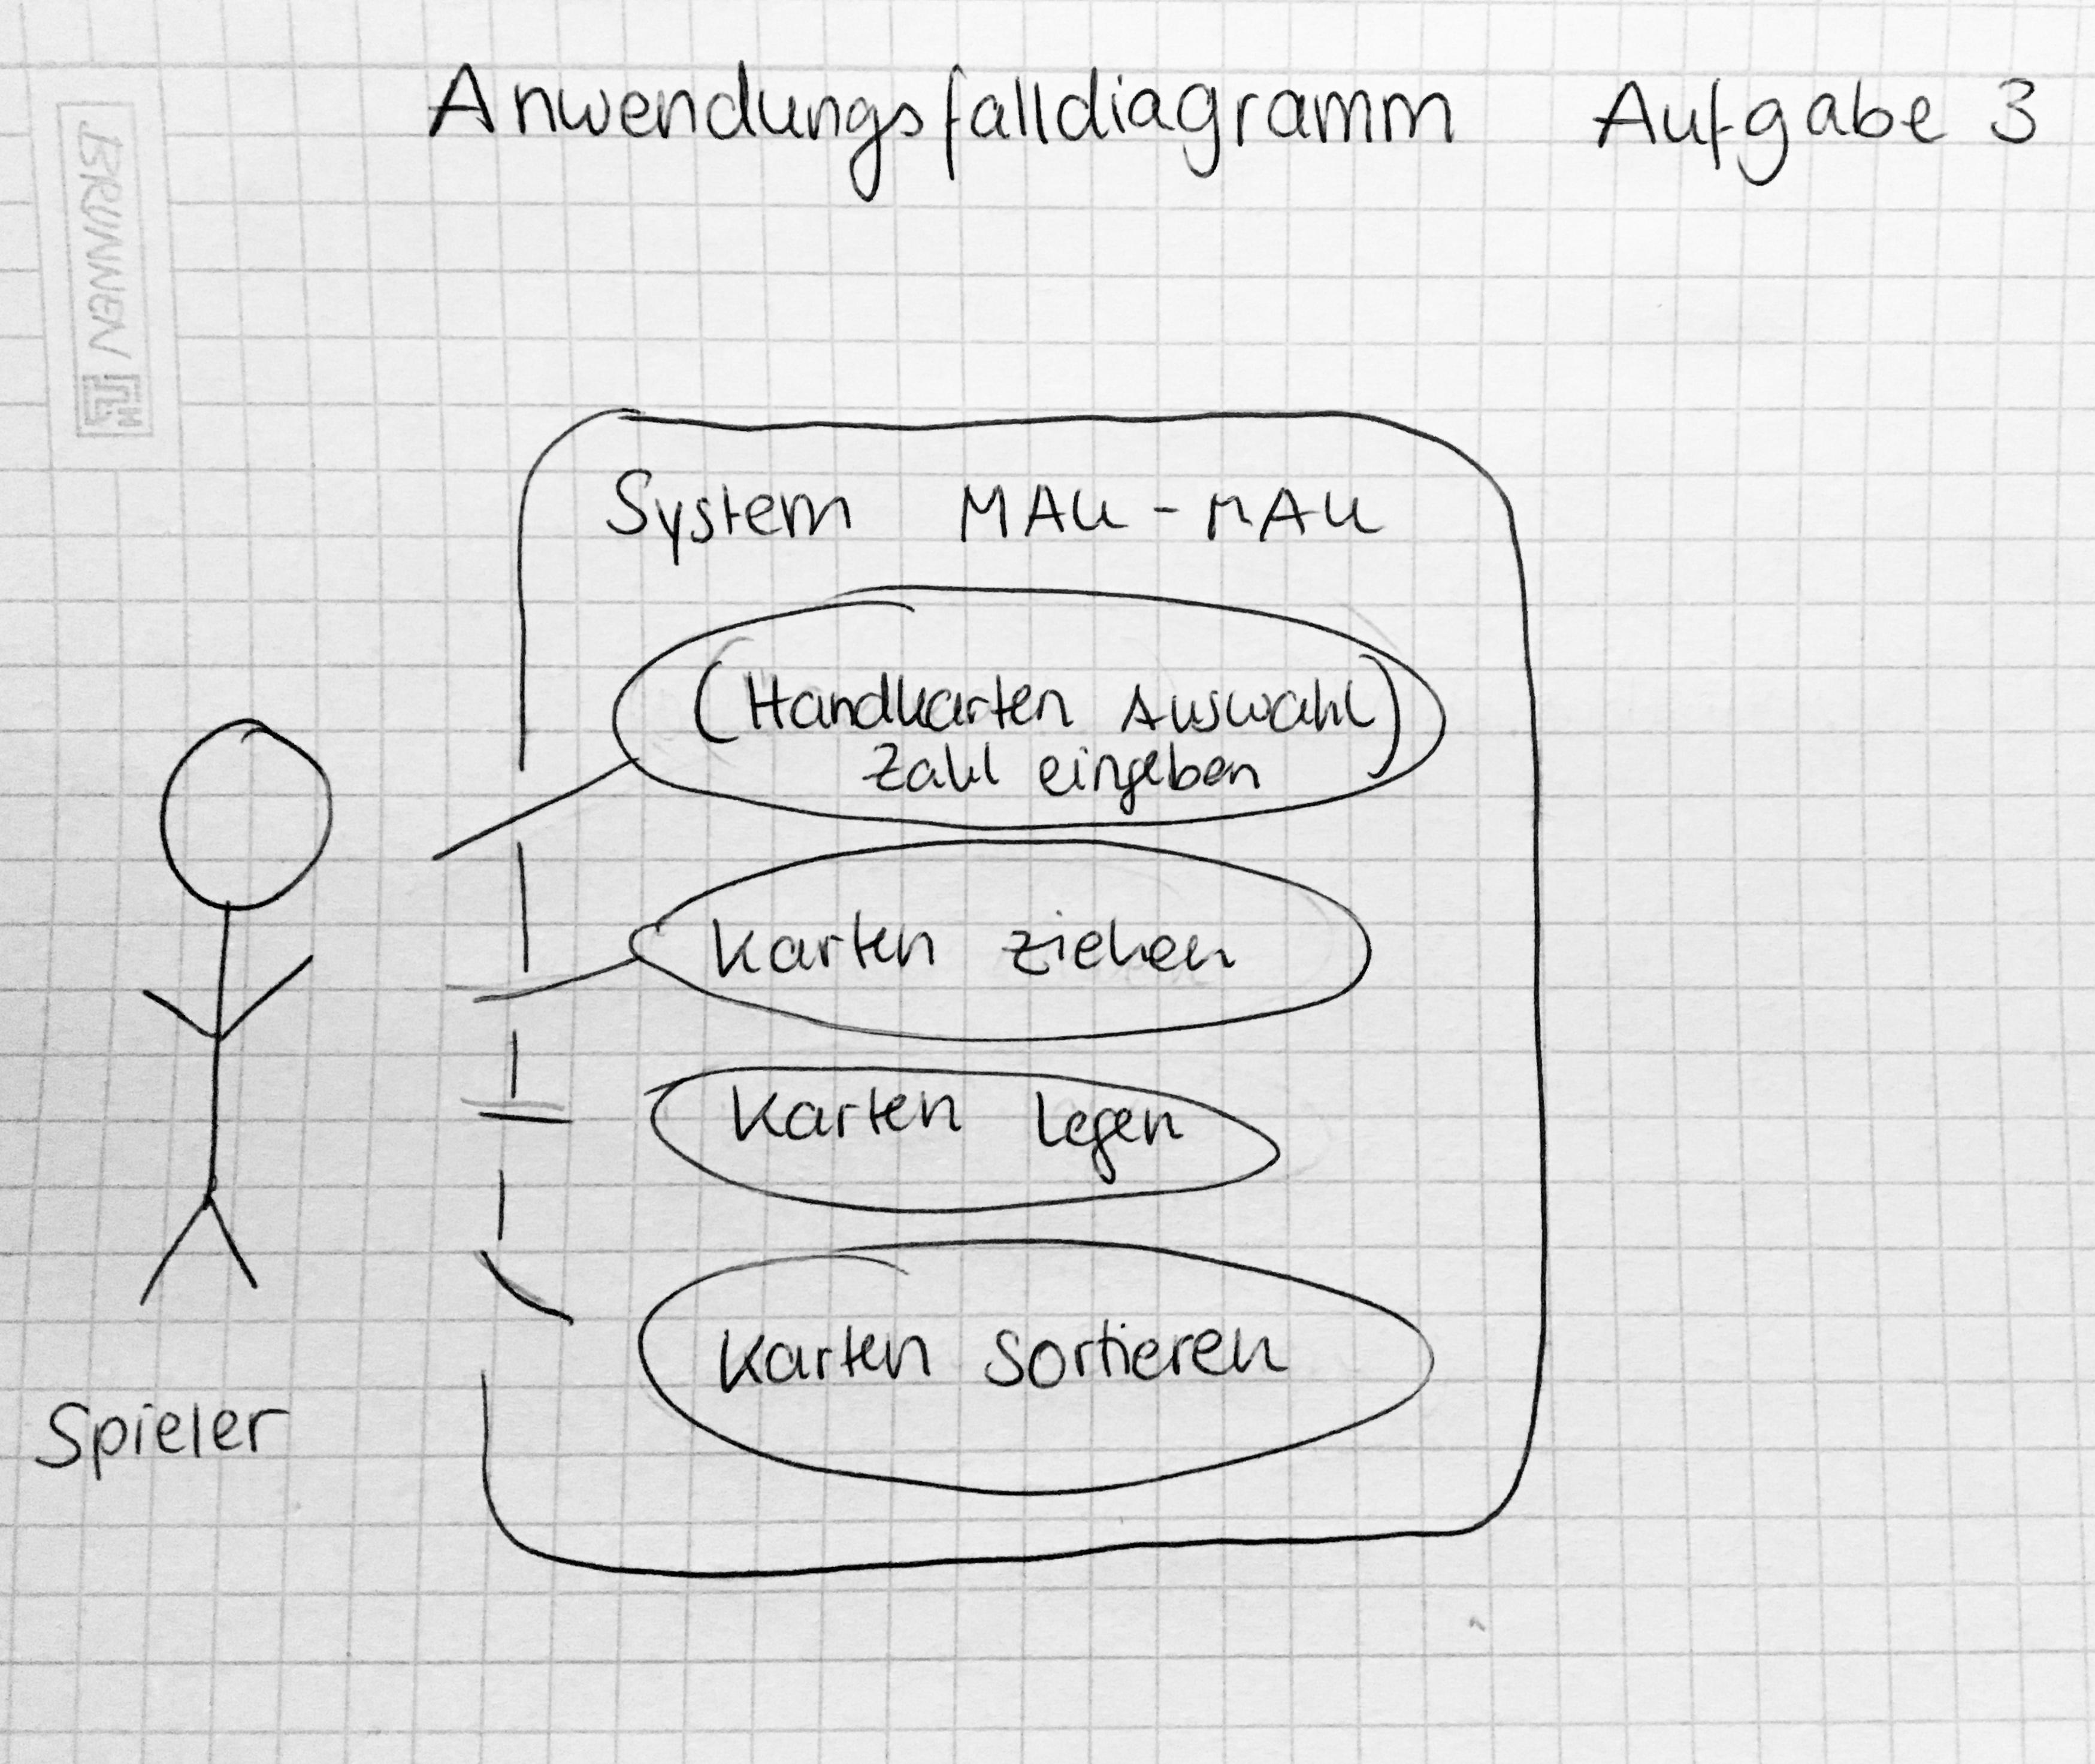 Anwendungsfalldiagramm Aufgabe 3
BRUNNEN
System MAU-MAU
(Handkarten Auswahl)
Zahl eingeben
Karten ziehen
Karten legen
Karten sortieren
Spieler